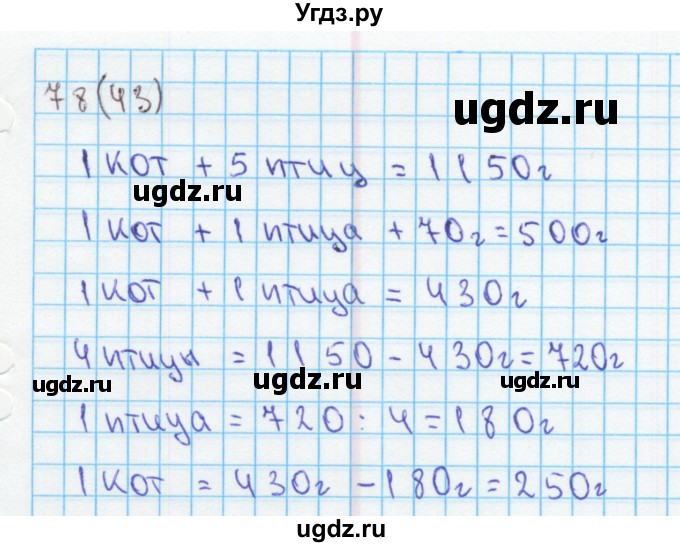 Угдз.ру
78(43)
ugdz.ru
1 кот + 5 птиц = 1150г
ugdz.ru
1 кот + 1 птица + 70г = 500г
1 кот + 1 птица = 430г
4 птицы = 1150 - 430г = 720г
ugdz.ru ugdz.ru ugdz.ru
1 птица = 720 : 4 = 180г
1 кот = 430г - 180г = 250г
ugdz.ru
ugdz.ru